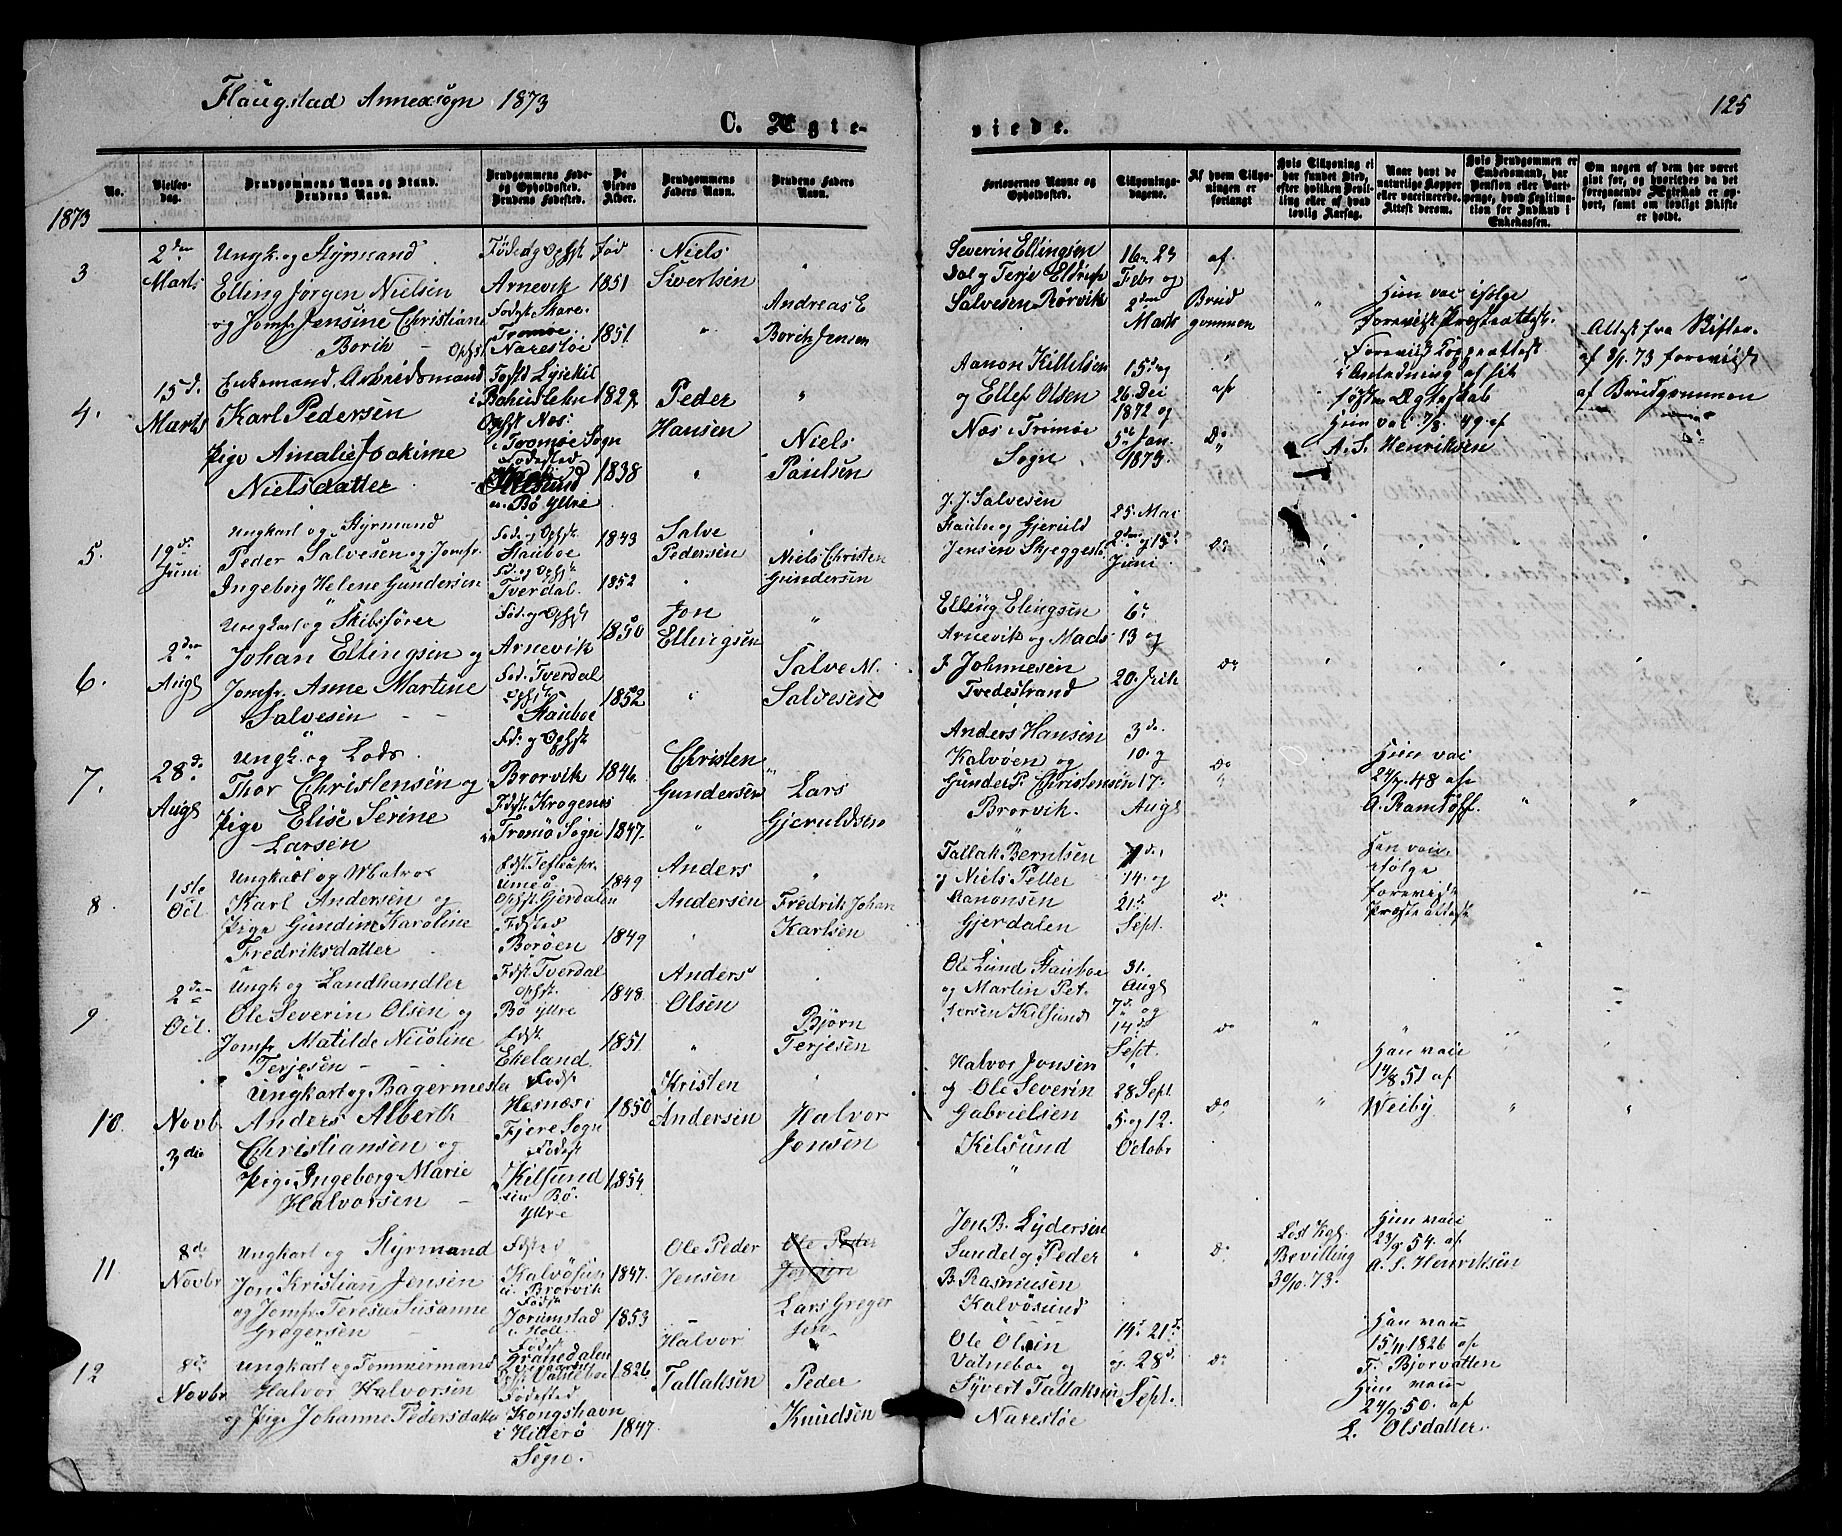 Flaugstad Annexsogn 1873
125
C. Ægte-
viede.
No.
Vielses-
dag.
Brudgommens Navn og Stand.
Brudens Navn.
Brudgommens Føde-
og Opholdssted.
Brudens Fødested.
De
Viedes
Alder.
Brudgommens
Faders Navn.
Brudens Faders
Navn.
Forlovernes Navne og
Opholdssted.
Tillysnings-
dagene.
Af hvem Tillys-
ningen er
forlangt
Hvis Tillysning ei
har fundet Sted,
efter hvilken Bevil-
ling eller af hvad
lovlig Aarsag.
Naar havt de
naturlige Kopper
eller vaccinerede.
Attest derom.
Hvis Brudgommen er
Embedsmand, har
Pension eller Vart-
penge, hvad Legitima-
tion for Indskud i
Enkekassen.
Om nogen af dem har været
gift før, og hvorledes da det
foregaaende Ægteskab er op-
hørt, samt om lovligt Skifte
er holdt.
1873
3
2den
Marts
Ungk. og Styrmand
Elling Jørgen Nielsen
og Jomfr. Jensine Christiane
Borik
Føded og Ophst
Arnevik
Fødst. Skare
Tromøe
Ophst. Narestøe
Fød
1851
1851.
Niels
Sivertsen
Andreas E
Borik Jensen
Severin Ellingsen
Dal og Terje Eldrup
Salvesen Rørvik
16. 23
Febr og
2den
Marts
af
Brud
gommen
Hun vac. ifølge
Forevist Præsteattest.
4.
15d.
Marts
Enkemand. Arbeidsmand
Karl Pedersen
Pige Amalie Joakime
Nielsdatter
Fødstd Lysekil
i Bohuslehn
Ophst Næs
i Tromøe Sogn
Fødested
Kilsund
i Bø Ytre
1829
1838
Peder
Hansen
Niels
Paulsen
Aanon Kittelsen
og Ellef Olsen
Næs i Tromøe
Sogn
15d og
26 Dei
1872 og
5te Jan.
1873.
af
Do
Forevist Kopperattest
i Anledning af sit
første Ægteskab
Hun vac. 17/8. 49 af
A. S. Henriksen
Attest fra Skifter.
af 8/1. 73 forevist
af Brudgommen
5.
19de
Juni
Ungkarl og Styrmand
Peder Salvesen og Jomfr.
Ingeborg Helene Gundersen
Fød. og Ophst
Stauboe
Fd. og Ophst
Tverdal
1843
1852
Salve
Pedersen
Niels Christen
Gundersen
J. J. Salvesen
Staubo og Gjeruld
Jensen Skjeggest.
25. Mai
2den og 15d
Juni
Do
6.
2den
Augs
Ungkarl og Skibsfører
Johan Ellingsen og
Jomfr. Anne Martine
Salvesen
Fød. og Ophst
Arnevik
Fød. Tverdal
Ophst
Stauboe
1850
1852
Jon
Ellingsen
Salve M.
Salvesen
Elling Elingsen
Arnevik og Mads
F. Johnnesen
Tvedestrand
6.
13 og
20. Juli
Do
7.
28d.
Augs
Ungk. og Lods.
Thor Christensen og
Pige Elise Serine
Larsen
Fd. og Ophst
Brorvik
Fdst. Krogenes
i Tromø Sogn
1846.
1847.
Christen
Gundersen
Lars
Gjeruldsen
Anders Hansen
Kalvøen og
Gunder P. Christensen
Brorvik.
3d.
10. og
17.
Augs
Do
Hun vac
24/9. 48 af
A. Ramtoffl.
8
1ste
Oct.
Ungkarl og Matros
Karl Andersen og
Pige Gundine Karoline
Fredriksdatter
Umeå
Ophst. Gjerdalen
Fdsted
Borøen
1849
1849
Anders
Andersen
Fredrik Johan
Karlsen
Tallak Berntsen
og Niels Petter
Aanonsen
Gjerdalen
7d.
14. og
21d.
Sept.
Do
Han vac.
ifølge
forevist
Præsteattest
9
2den
Oct.
Ungk og Landhandler
Ole Severin Olsen og
Jomfr Matilde Nicoline
Terjesen
Fdst. Tverdal
Ophst.
Bø Ytre
Fdst
Ekeland
1848.
1851.
Anders
Olsen
Bjørn
Terjesen
Ole Lund Stauboe
og Martin Pet.
Jensen Kilsund
31.
Augs
7d. og
14d
Sept.
Do
10.
Novbr
3die
Ungkarl og Bagermester
Anders Alberth
Christiansen og
Pige Ingeborg Marie
Halvorsen
Fødst
Hesnæs i
Fjere Sogn
Fødest
Kilsund
Bø
Ytre
1850
1854.
Kristen
Andersen
Halvor
Jonsen
Halvor Jonsen
og Ole Severin
Gabrielsen
Kilsund
28 Sept.
5. og 12.
Octobr
Do
Han vac
14/8 51 af
Weiby
11
8de
Novbr
Ungkarl og Styrmand
Jon Kristian Jensen
og Jomfr. Terese Susanne
Gregersen
Fdsted
Kalvøsun
i. Brorvik
Fødst
Jorumstad
i Holt
1847.
1853
Ole Peder
Jensen
Ole Peder
Jensen
Lars Greger
sen
Jon B. Lydersen
Sundet og Peder
B. Rasmusen
Kalvøsund
Do
Løst Kgl.
Bevilling
30/10. 73.
Hun vac
23/9. 54 af
A. S. Henriksen
12
8d.
Novbr
Ungkarl og Tømmermand
Halvor Halvorsen
og Pige Johanne Pedersdatter
Fødst
Granedalen
Ophst. Vatneboe
Fødested
Kongshavn
i Hitterø
Sogn.
1826
1847.
Halvor
Tallaksen
Peder
Knudsen
Ole Olsen
Vatneboe og
Syvert Tallaksen
Narestøe
14d 21d
og 28d.
Sept.
Do
Han vacc
15/11 1826 af
T. Bjorvatten
Hun vacc
24/9. 50. af
L. Olsdatter